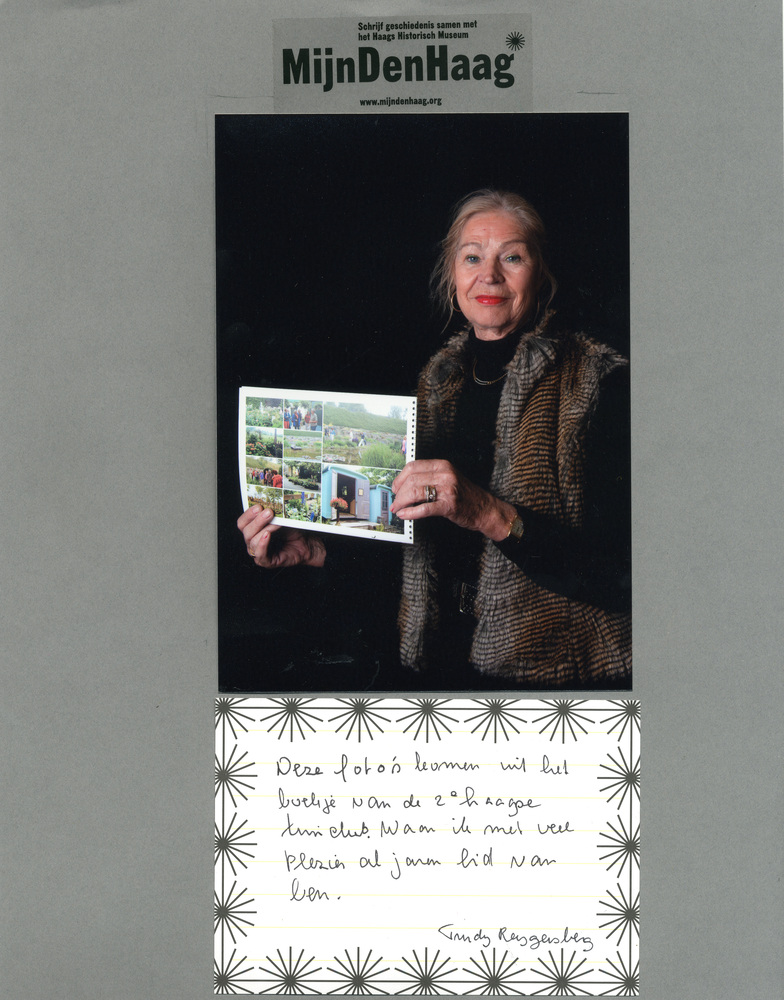 Schrijf geschiedenis samen met
het Haags Historisch Museum
MijnDenHaag
www.mijndenhaag.org
Deze foto's komen uit het
boekje van de 2e haagse
tuinclub. Waar ik met veel
plezier al jaren lid van
ben.
Trudy